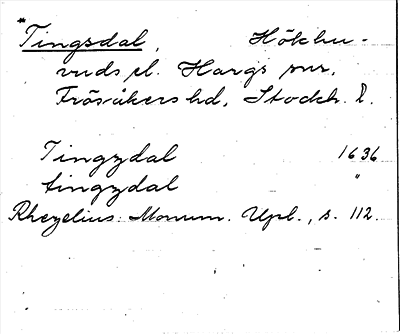 *Tingsdal, Hökhu-
vuds sl. Hargs snr,
Frösåkers hd, Stockh. l.
Tingzdal 1636
tingzdal "
Rhezelius: Monum. Upl., s. 112.